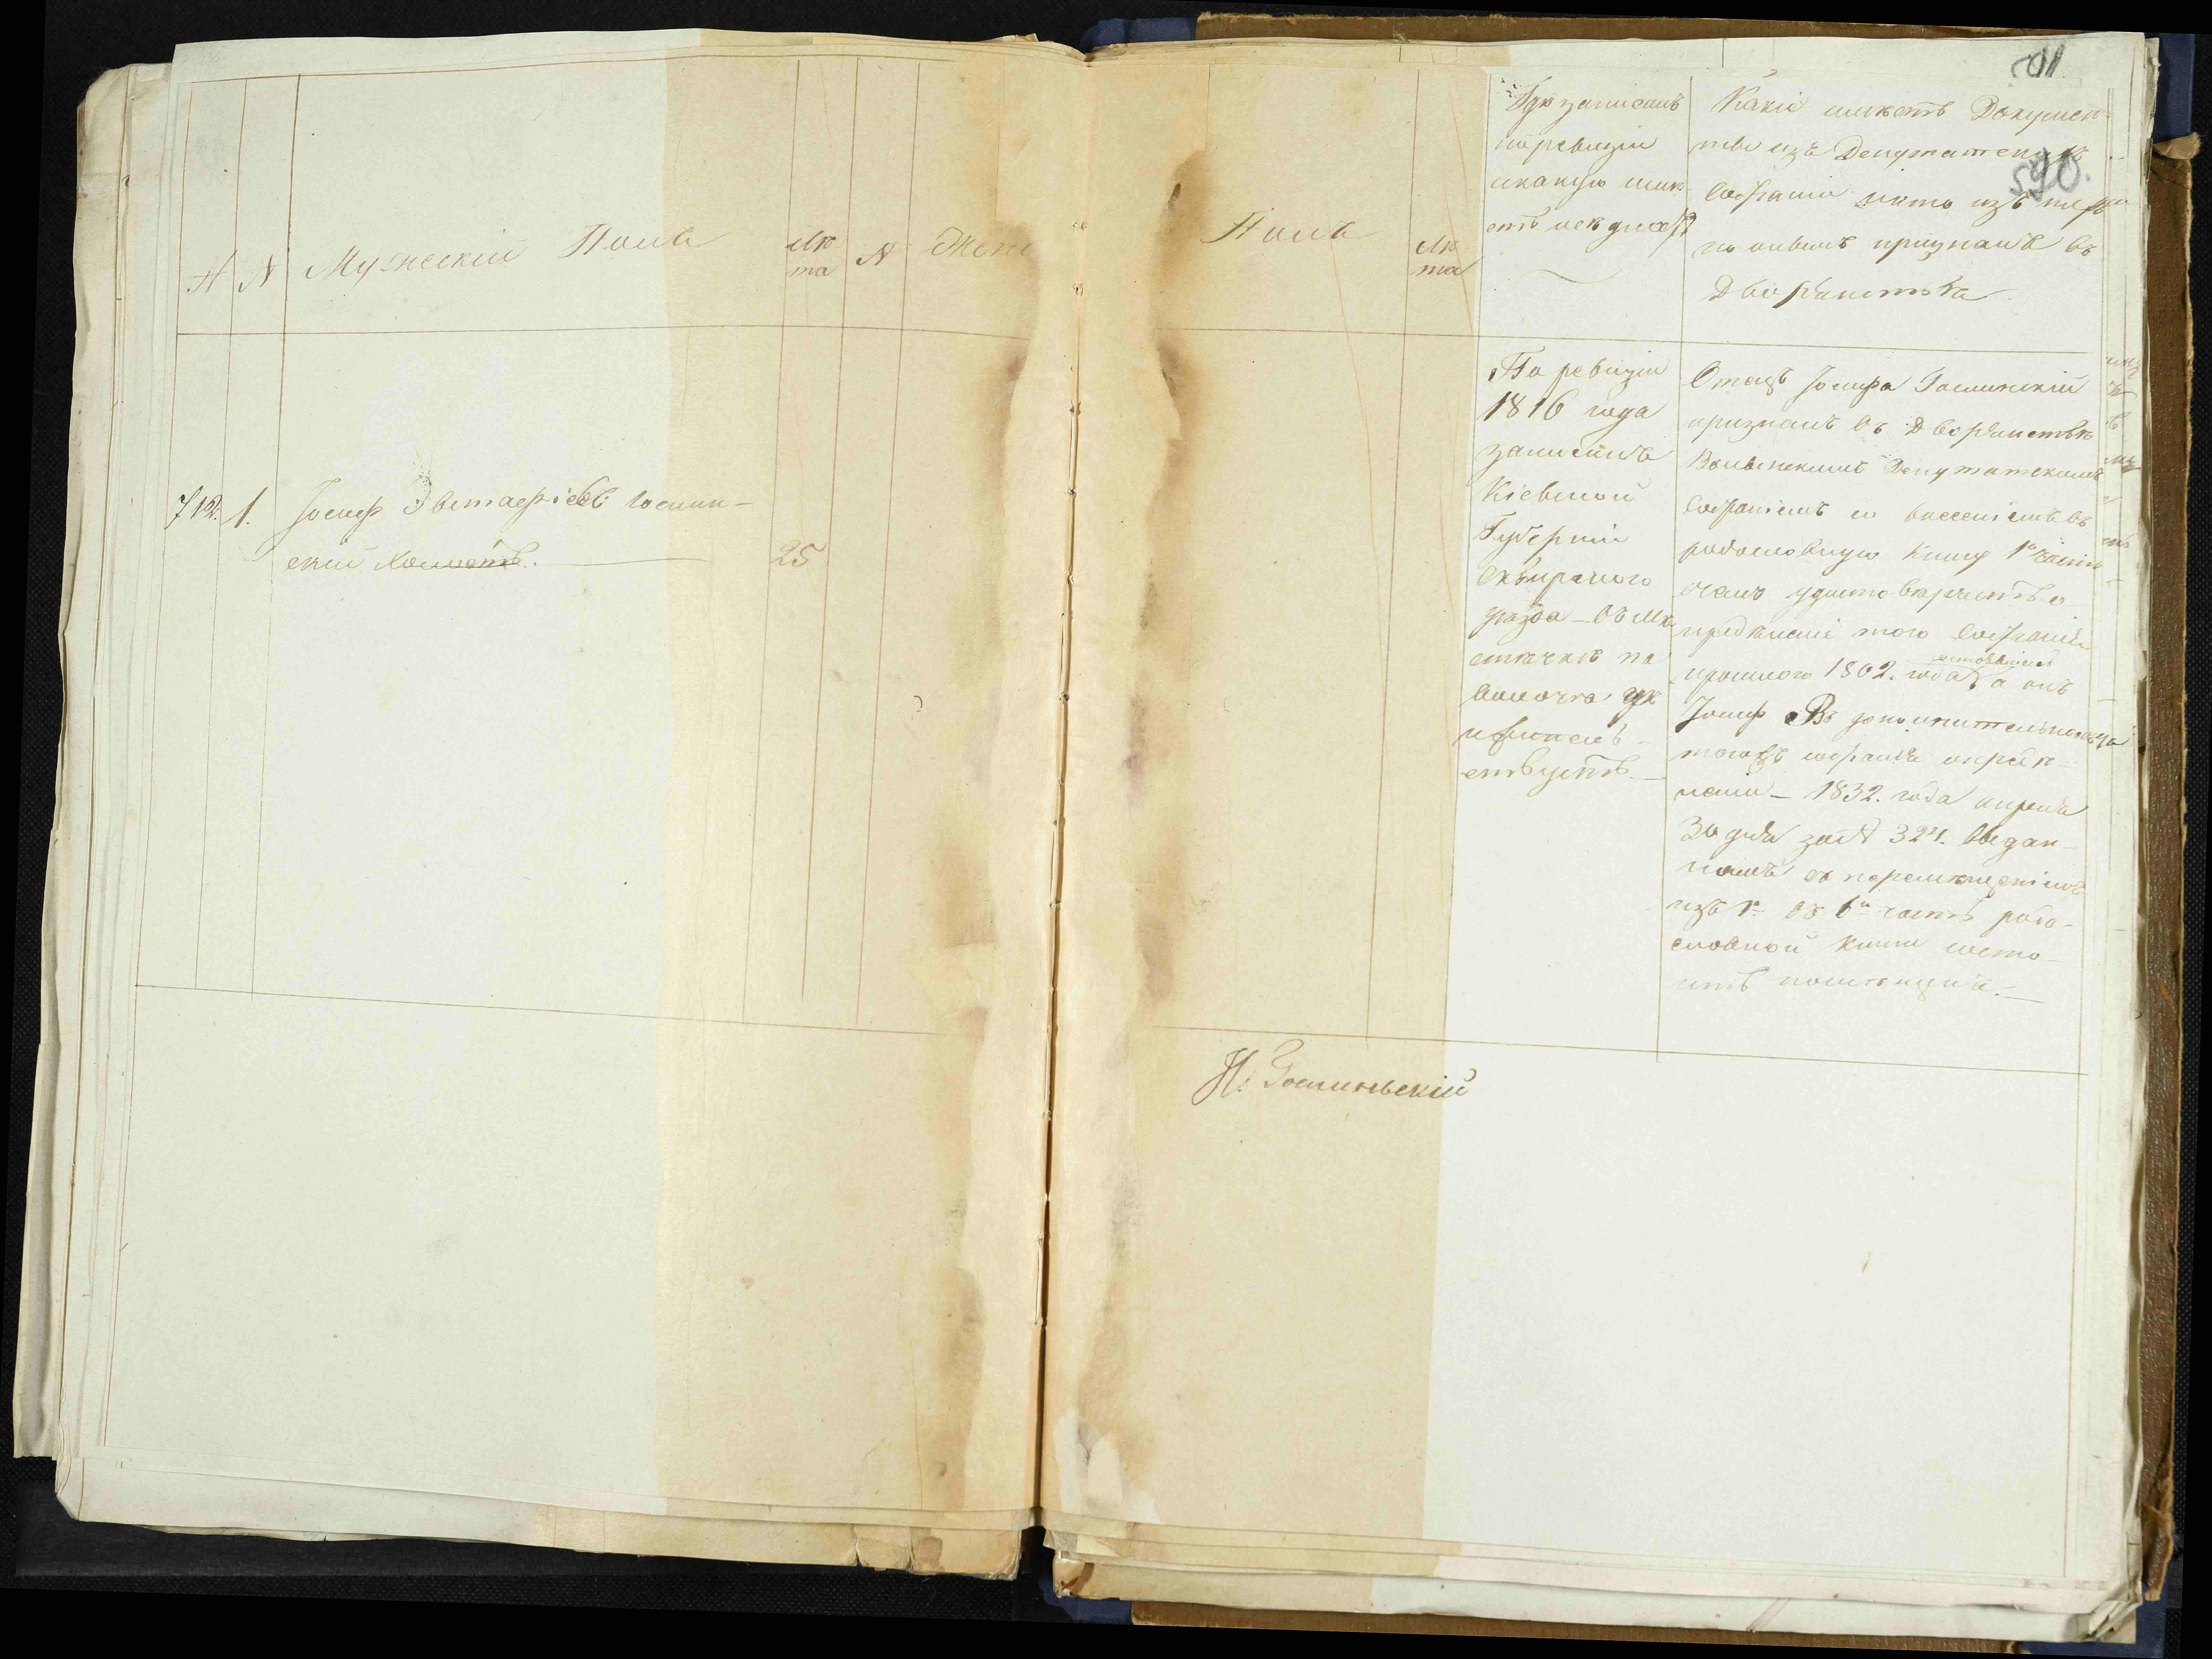 590.
N N Мужескій Полъ Лѣ-
та N Жен
Полъ Лѣ-
та
Гдѣ записанъ
по ревизіи
и какую имѣ-
етъ осѣдлость
Какіе имѣетъ Докумен-
ты изъ Депутатскихъ
Собраній и кто изъ
оныхъ признанъ въ
Дворянствѣ
712. 1. Іосиф Эвстафіевъ Госмин-
скій Холостъ. 25
По ревизіи
1816 года
записанъ
Кіевской
Губерніи
Сквирского
уѣзда в мѣ-
стечкѣ Па
волочи гдѣ
и жителъ-
ствуетъ
Отецъ Іосифа Госминскій
признанъ въ Дворянствѣ
Волынскимъ Депутатскимъ
Собраніемъ со внесеніемъ въ
родословную книгу 1й части
о чемъ удостовѣряетъ
опредѣленіе того Собранія
прошлого 1802. года состоявшееся а онъ
Іосиф въ дополнительномъ
тогожъ собранія опредѣ-
леніи 1832. года апрѣля
30 дня за N 324. выдан-
номъ съ перемѣщеніемъ
изъ 1й въ 6ю часть родо-
словной книги состо-
итъ помѣщенъ.
И. Госминьскій